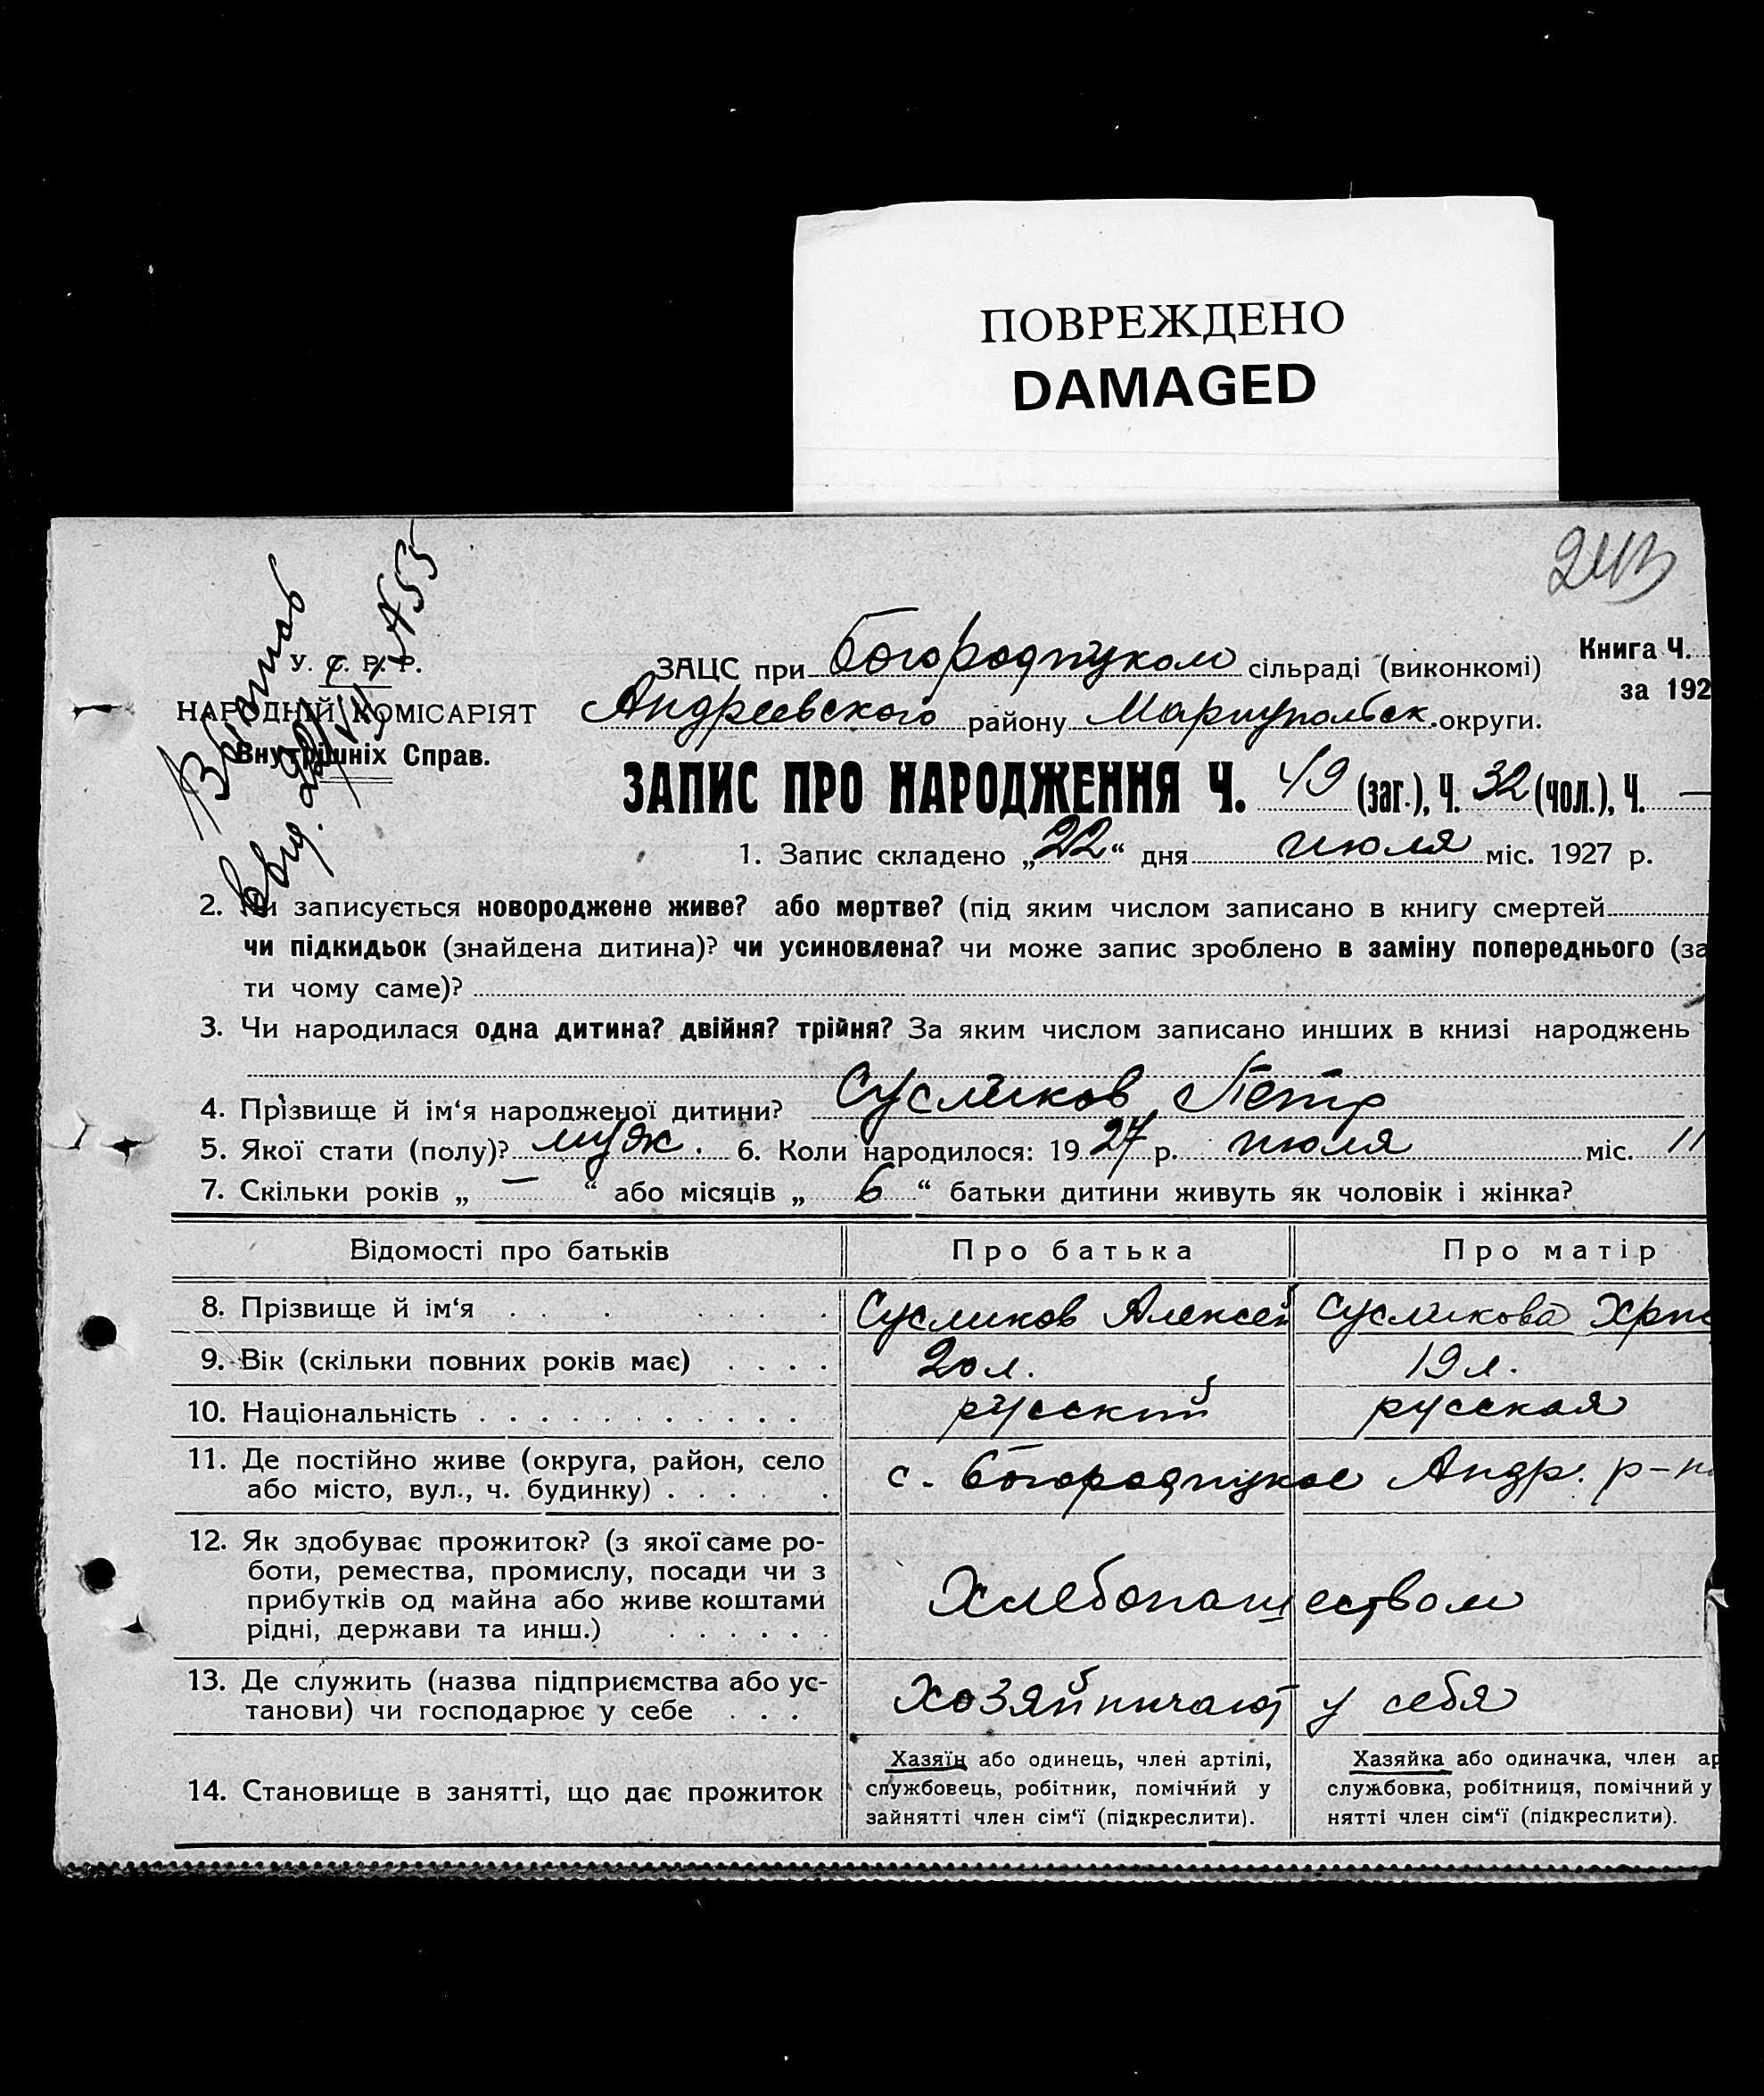 ПОВРЕЖДЕНО
DAMAGED
243
У. С. Р. Р.
НАРОДНІЙ КОМІСАРІЯТ
Внутрішніх Справ.
Книга Ч.
за 192
ЗАЦС при сільраді (виконкомі)
Андреевского району Мариупольск. округи.
ЗАПИС ПРО НАРОДЖЕННЯ Ч. 49 (заг.), Ч. 32 (чол.), Ч. —
1. Запис складено „22“ дня июля міс. 1927 р.
2. Чи записується новороджене живе? або мертве? (під яким числом записано в книгу смертей
чи підкидьок (знайдена дитина)? чи усиновлена? чи може запис зроблено в заміну попереднього (за
ти чому саме)?
3. Чи народилася одна дитина? двійня? трійня? За яким числом записано инших в книзі народжень
4. Прізвище й ім‘я народженої дитини? Сусликов Петр
5. Якої стати (полу)? муж. 6. Коли народилося: 1927 р. июля міс. 11
7. Скільки років „ — “ або місяців „ 6 “ батьки дитини живуть як чоловік і жінка?
Відомості про батьків Про батька Про матір
8. Прізвище й ім‘я Сусликов Алексей Сусликова
9. Вік (скільки повних років має) 20 л. 19 л.
10. Національність русский русская
11. Де постійно живе (округа, район, село
або місто, вул., ч. будинку) с. Андр. р-н
12. Як здобуває прожиток? (з якої саме ро-
боти, ремества, промислу, посади чи з
прибутків од майна або живе коштами
рідні, держави та инш.) Хлебопашеством
13. Де служить (назва підприємства або ус-
танови) чи господарює у себе Хозяйничают у себя
14. Становище в занятті, що дає прожиток
Хазяїн або одинець, член артілі,
службовець, робітник, помічний у
зайнятті член сім‘ї (підкреслити).
Хазяйка або одиначка, член ар
службовка, робітниця, помічний у
нятті член сім‘ї (підкреслити).